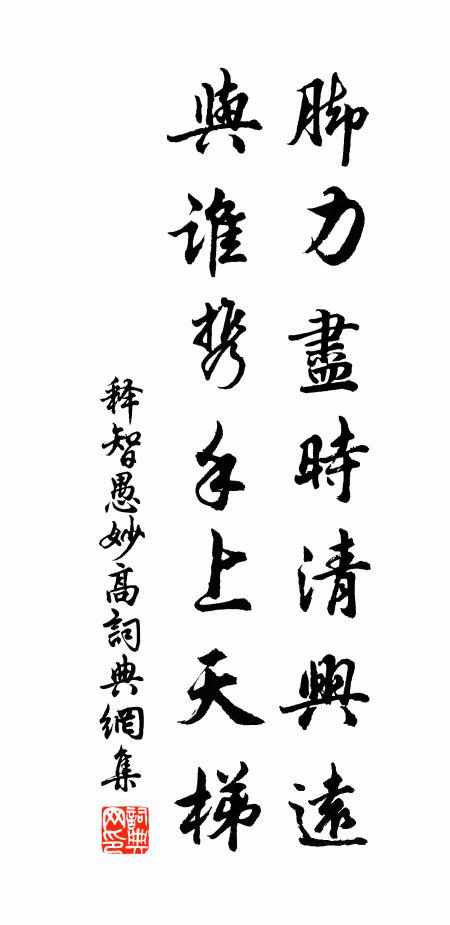 脚力盡時清興遠
與誰携手上天梯
释智愚妙高詞典網集
詞典网印